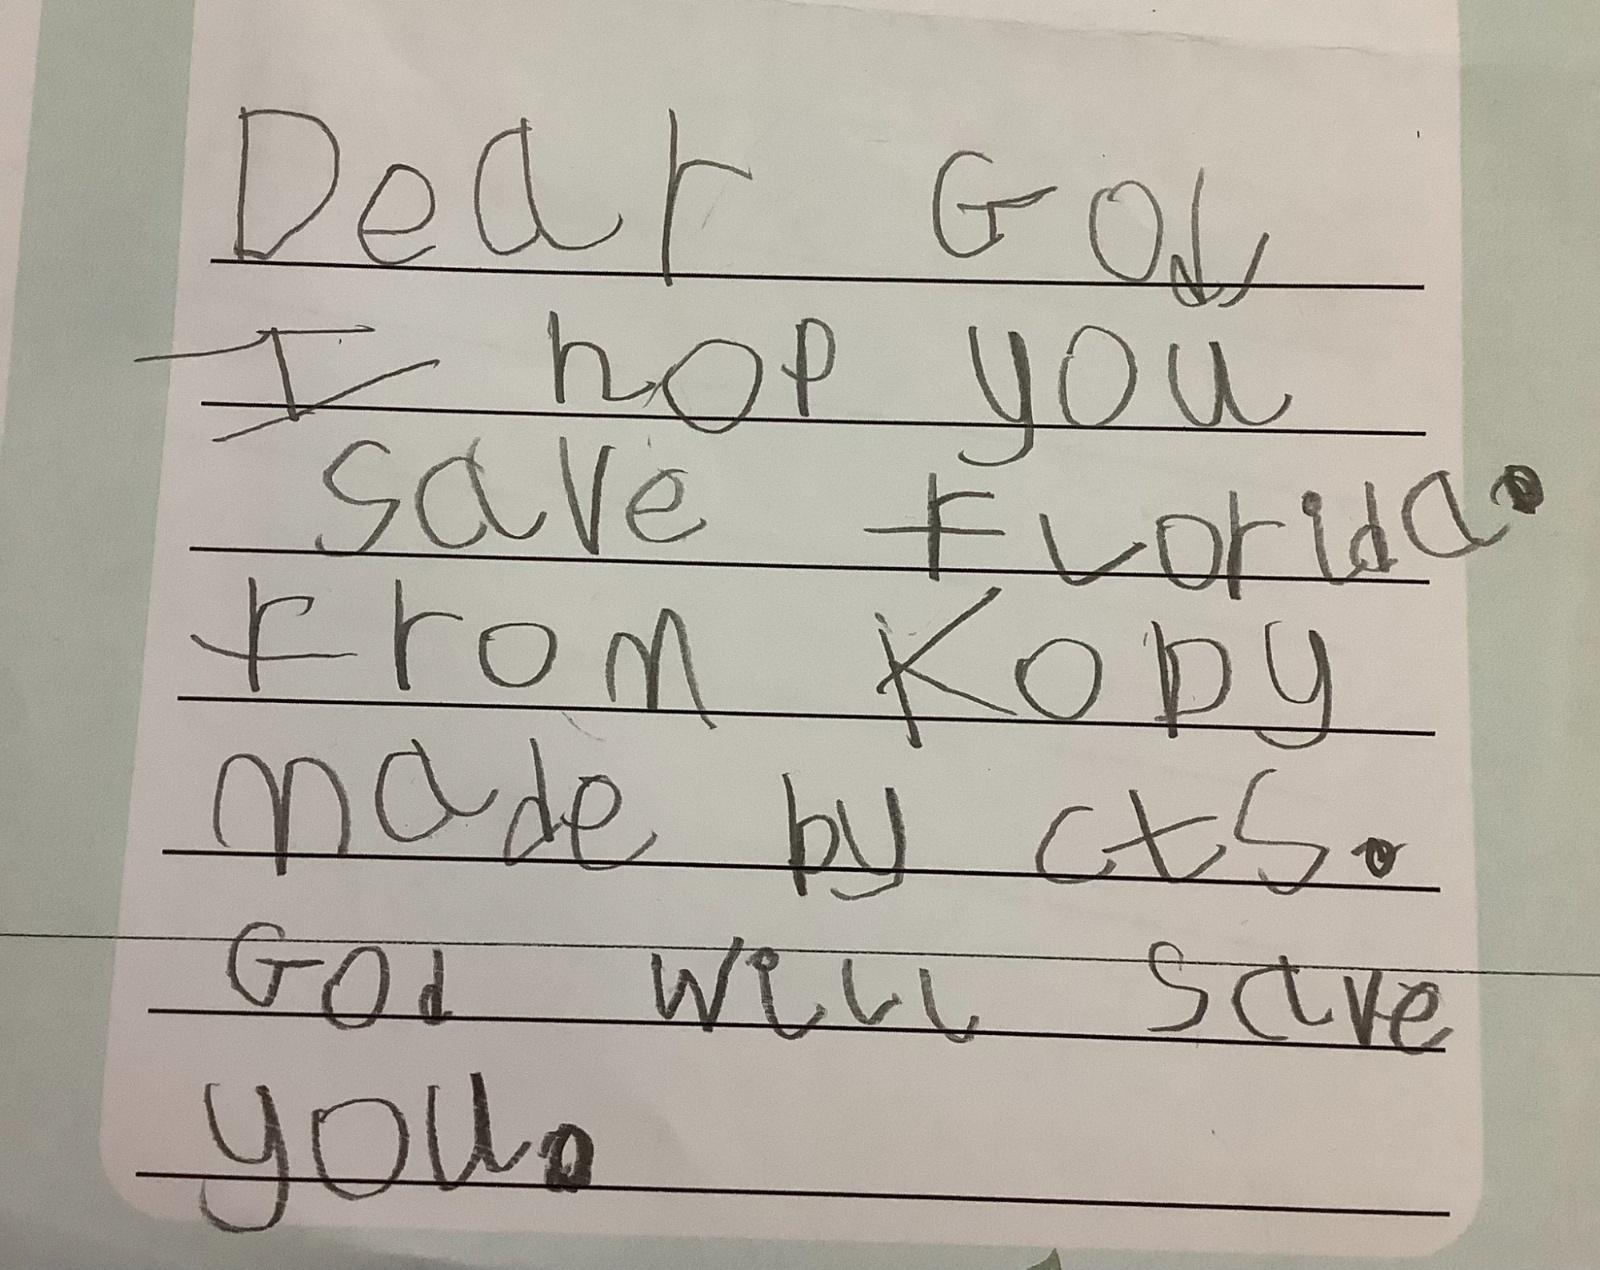 Dear God
I hop you
save Florida.
From Kopy
made by cts.
God will save
you.